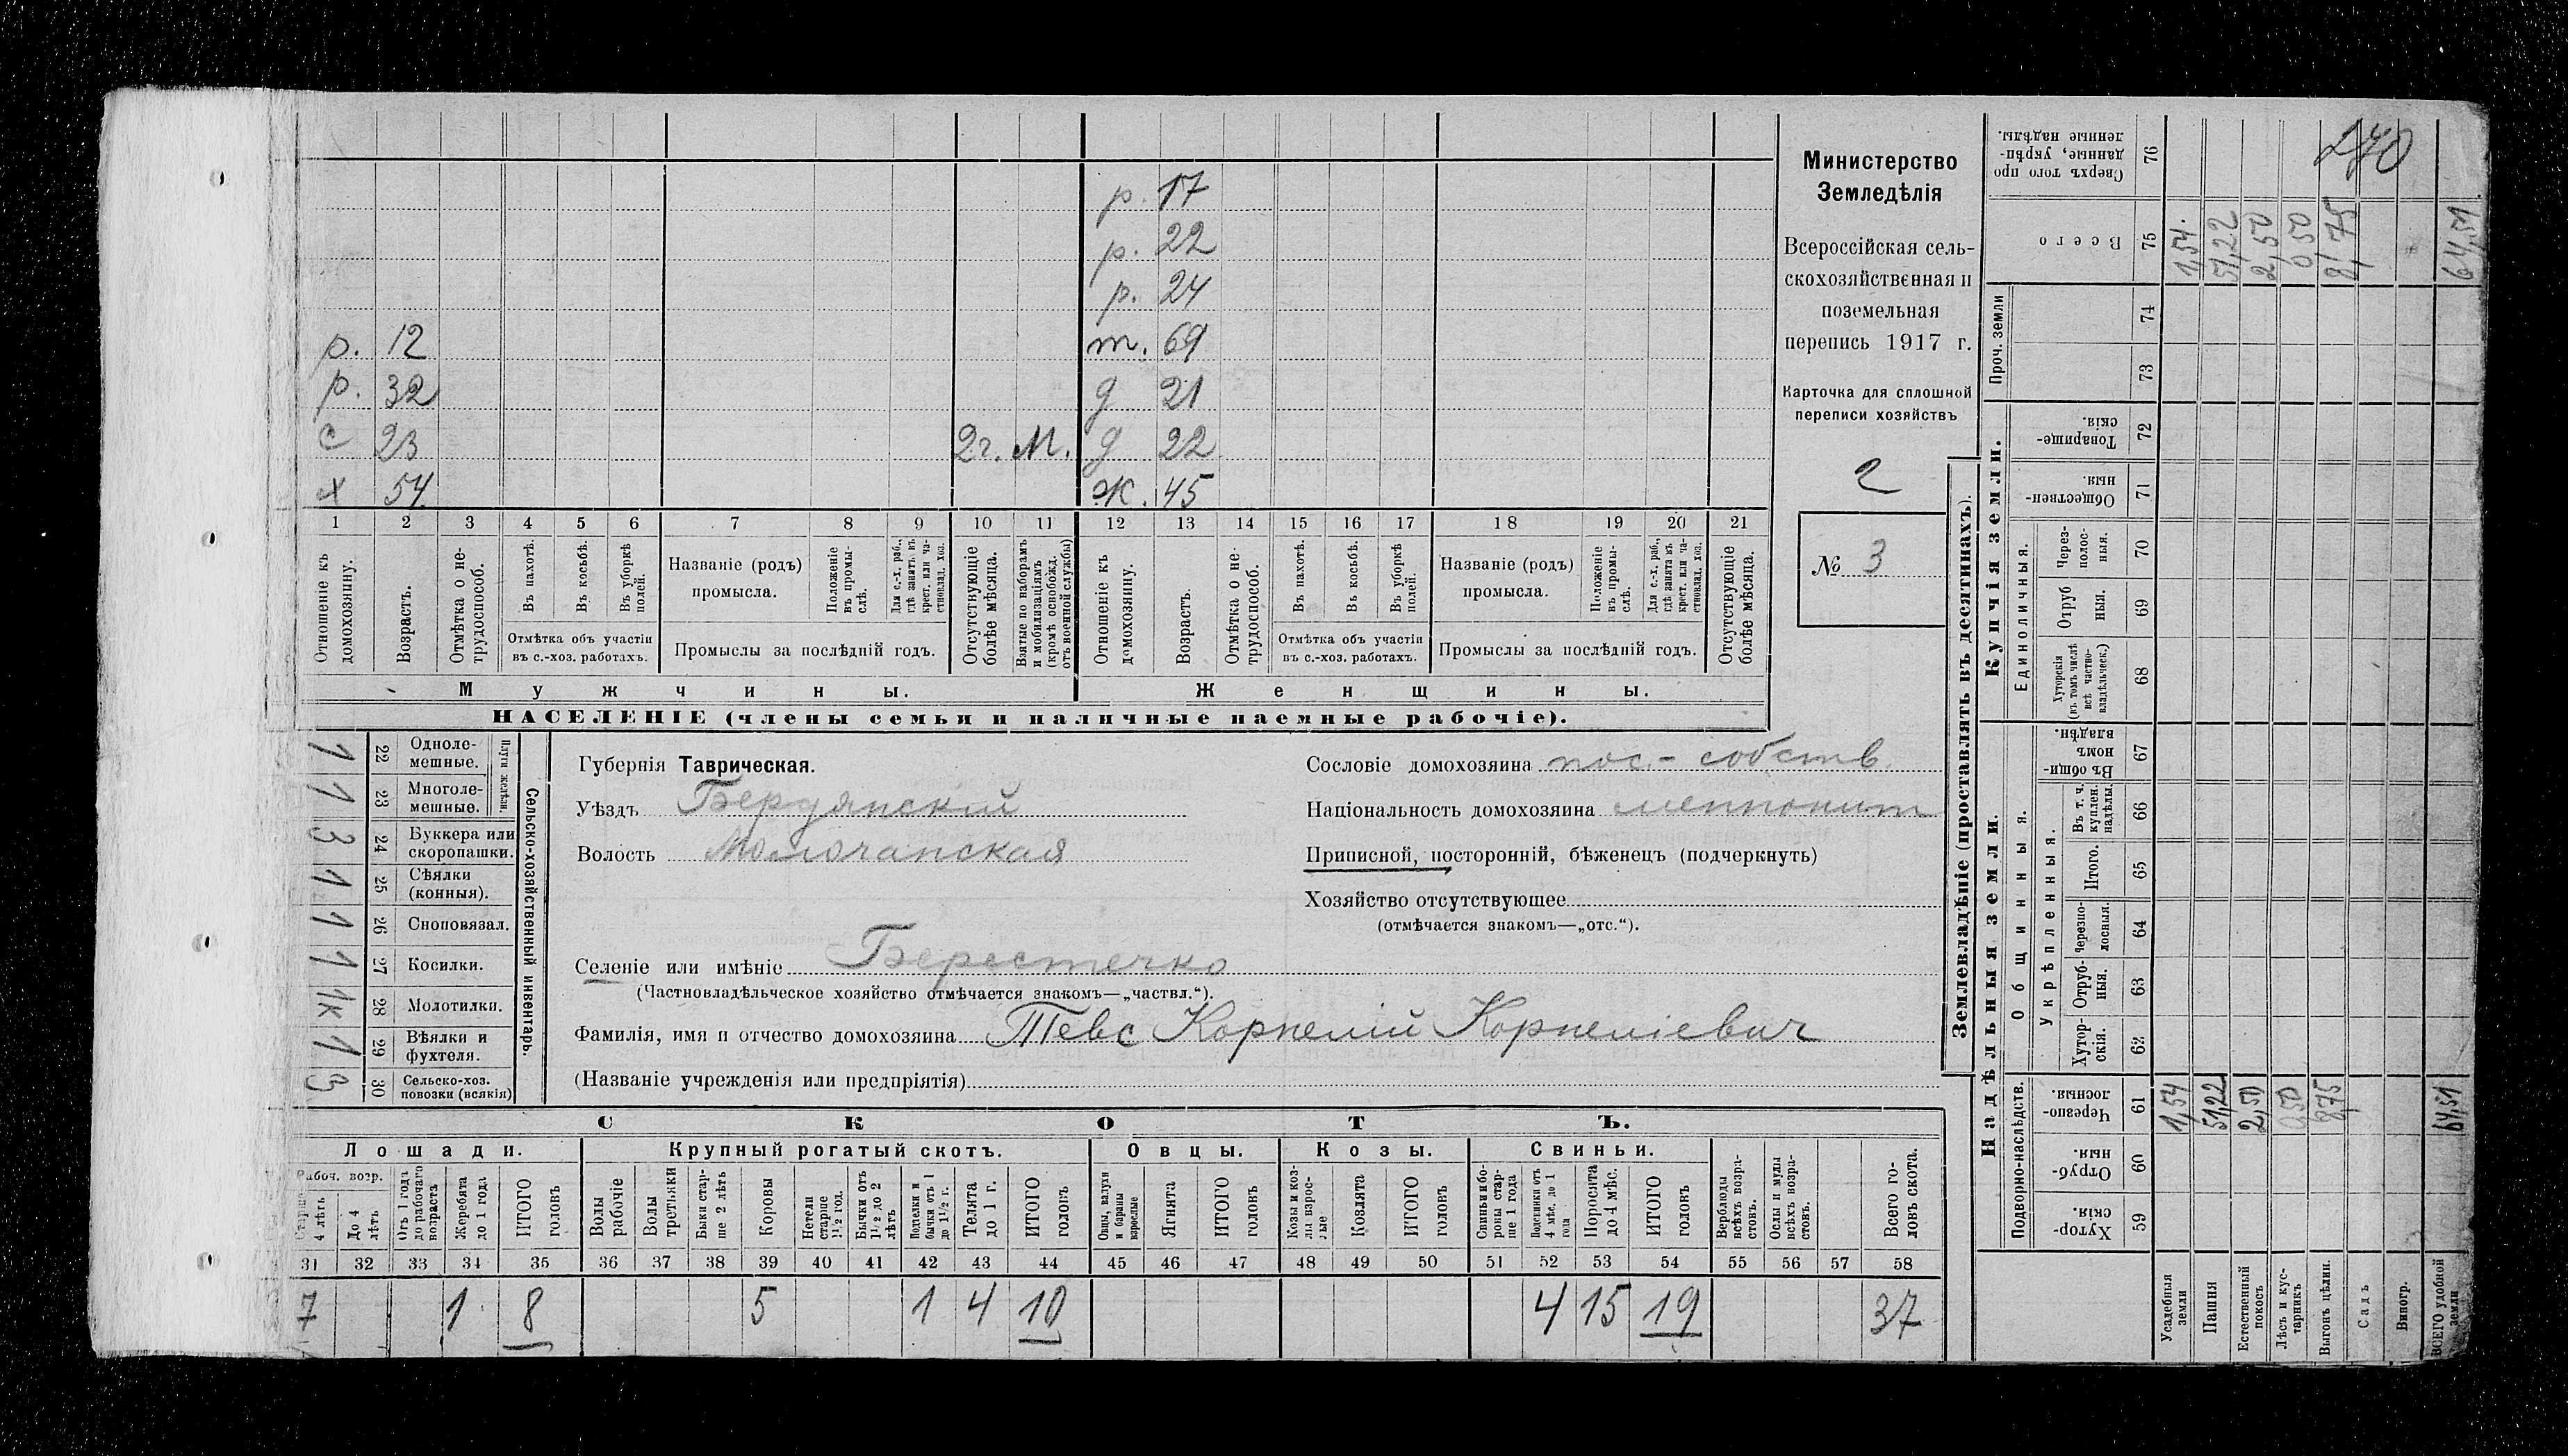 р. 17
р. 22
р. 24
р. 12 т. 69
р. 32 д 21
с 23 2г. М. д 22
х 54 Ж. 45
1 2 3 4 5 6 7 8 9 10 11 12 13 14 15 16 17 18 19 20 21
Отношеніе къ домохозяину.
Возрастъ.
Отмѣтка о не-трудоспособ.
Въ пахотѣ.
Въ косьбѣ.
Въ уборкѣ полей.
Отмѣтка объ участіи въ с.-хоз. работахъ.
Названіе (родъ) промысла.
Положеніе въ промы-слѣ.
Для с.-х. раб., гдѣ занятъ въ крест. или ча-стновлад. хоз.
Промыслы за послѣдній годъ.
Отсутствующіе болѣе мѣсяца.
Взятые по наборамъ и мобилизаціямъ (кромѣ освобожд. отъ военной службы)
Отношеніе къ домохозяину.
Возрастъ.
Отмѣтка о не-трудоспособ.
Въ пахотѣ.
Въ косьбѣ.
Въ уборкѣ полей.
Отмѣтка объ участіи въ с.-хоз. работахъ.
Названіе (родъ) промысла.
Положеніе въ промы-слѣ.
Для с.-х. раб., гдѣ занята въ крест. или ча-стновлад. хоз.
Промыслы за послѣдній годъ.
Отсутствующіе болѣе мѣсяца.
Мужчины. Женщины.
НАСЕЛЕНІЕ (члены семьи и наличные наемные рабочіе).
Министерство
Земледѣлія
Всероссійская сель-
скохозяйственная и
поземельная
перепись 1917 г.
Карточка для сплошной
переписи хозяйствъ
2
№ 3
Сельско-хозяйственный инвентарь.
Плуги желѣзн.
Одноле-мешные. 22 1
Многоле-мешные. 23 1
Буккера или скоропашки. 24 3
Сѣялки (конныя). 25 1
Сноповязал. 26 1
Косилки. 27 1
Молотилки. 28 1к
Вѣялки и фухтеля. 29 1
Сельско-хоз. повозки (всякія) 30 3
Губернія Таврическая.
Уѣздъ Бердянскій
Волость Молочанская
Селеніе или имѣніе Берестечко
(Частновладѣльческое хозяйство отмѣчается знакомъ—„частвл.“).
Фамилія, имя и отчество домохозяина Тевс Корнелій Корнеліевич
(Названіе учрежденія или предпріятія)
Сословіе домохозяина пос.- собств.
Національность домохозяина меннонит
Приписной, посторонній, бѣженецъ (подчеркнуть)
Хозяйство отсутствующее
(отмѣчается знакомъ—„отс.“).
СКОТЪ.
Лошади. Крупный рогатый скотъ. Овцы. Козы. Свиньи.
Рабоч. возр.
Старше 4 лѣтъ
До 4 лѣтъ
Отъ 1 года до рабочаго возраста
Жеребята до 1 года
ИТОГО головъ
Волы рабочіе
Волы третьяки
Быки стар-ше 2 лѣтъ
Коровы
Нетели старше 1½ год.
Бычки отъ 1½ до 2 лѣтъ
Подтелки и бычки отъ 1 до 1½ г.
Телята до 1 г.
ИТОГО головъ
Овцы, валухи и бараны взрослые
Ягнята
ИТОГО головъ
Козы и коз-лы взрос-лые
Козлята
ИТОГО головъ
Свиньи и бо-ровы стар-ше 1 года
Подсвинки отъ 4 мѣс. до 1 года
Поросята до 4 мѣс.
ИТОГО головъ
Верблюды всѣхъ возра-стовъ.
Ослы и мулы всѣхъ возра-стовъ.
Всего го-ловъ скота.
31 32 33 34 35 36 37 38 39 40 41 42 43 44 45 46 47 48 49 50 51 52 53 54 55 56 57 58
7 1 8 5 1 4 10 4 15 19 37
Землевладѣніе (проставлять въ десятинахъ).
Надѣльныя земли.
Купчія земли.
Проч. земли
Подворно-наслѣдств.
Общинныя.
Укрѣпленныя.
Единоличныя.
Хутор-скія. 59
Отруб-ныя. 60
Черезпо-лосныя. 61
Хутор-скія. 62
Отруб-ныя. 63
Черезпо-лосныя. 64
Итого. 65
Въ т. ч. куплен. надѣлы. 66
Въ общи-номъ владѣн. 67
Хуторскія (въ томъ числѣ всѣ частно-владѣльческ.) 68
Отруб ныя. 69
Через-полос-ныя. 70
Обществен-ныя. 71
Товарище-скія. 72
73
74
Всего 75
Сверхъ того про данные, укрѣп-ленные надѣлы. 76
Усадебныя земли 1,54 1,54.
Пашня 51,22 51,22
Естественный покосъ 2,50 2,50
Лѣсъ и кус-тарникъ 0,50 0,50
Выгонъ цѣлин. 8,75 8,75
Садъ
Виногр.
ВСЕГО удобной земли 64,51 64,51
240